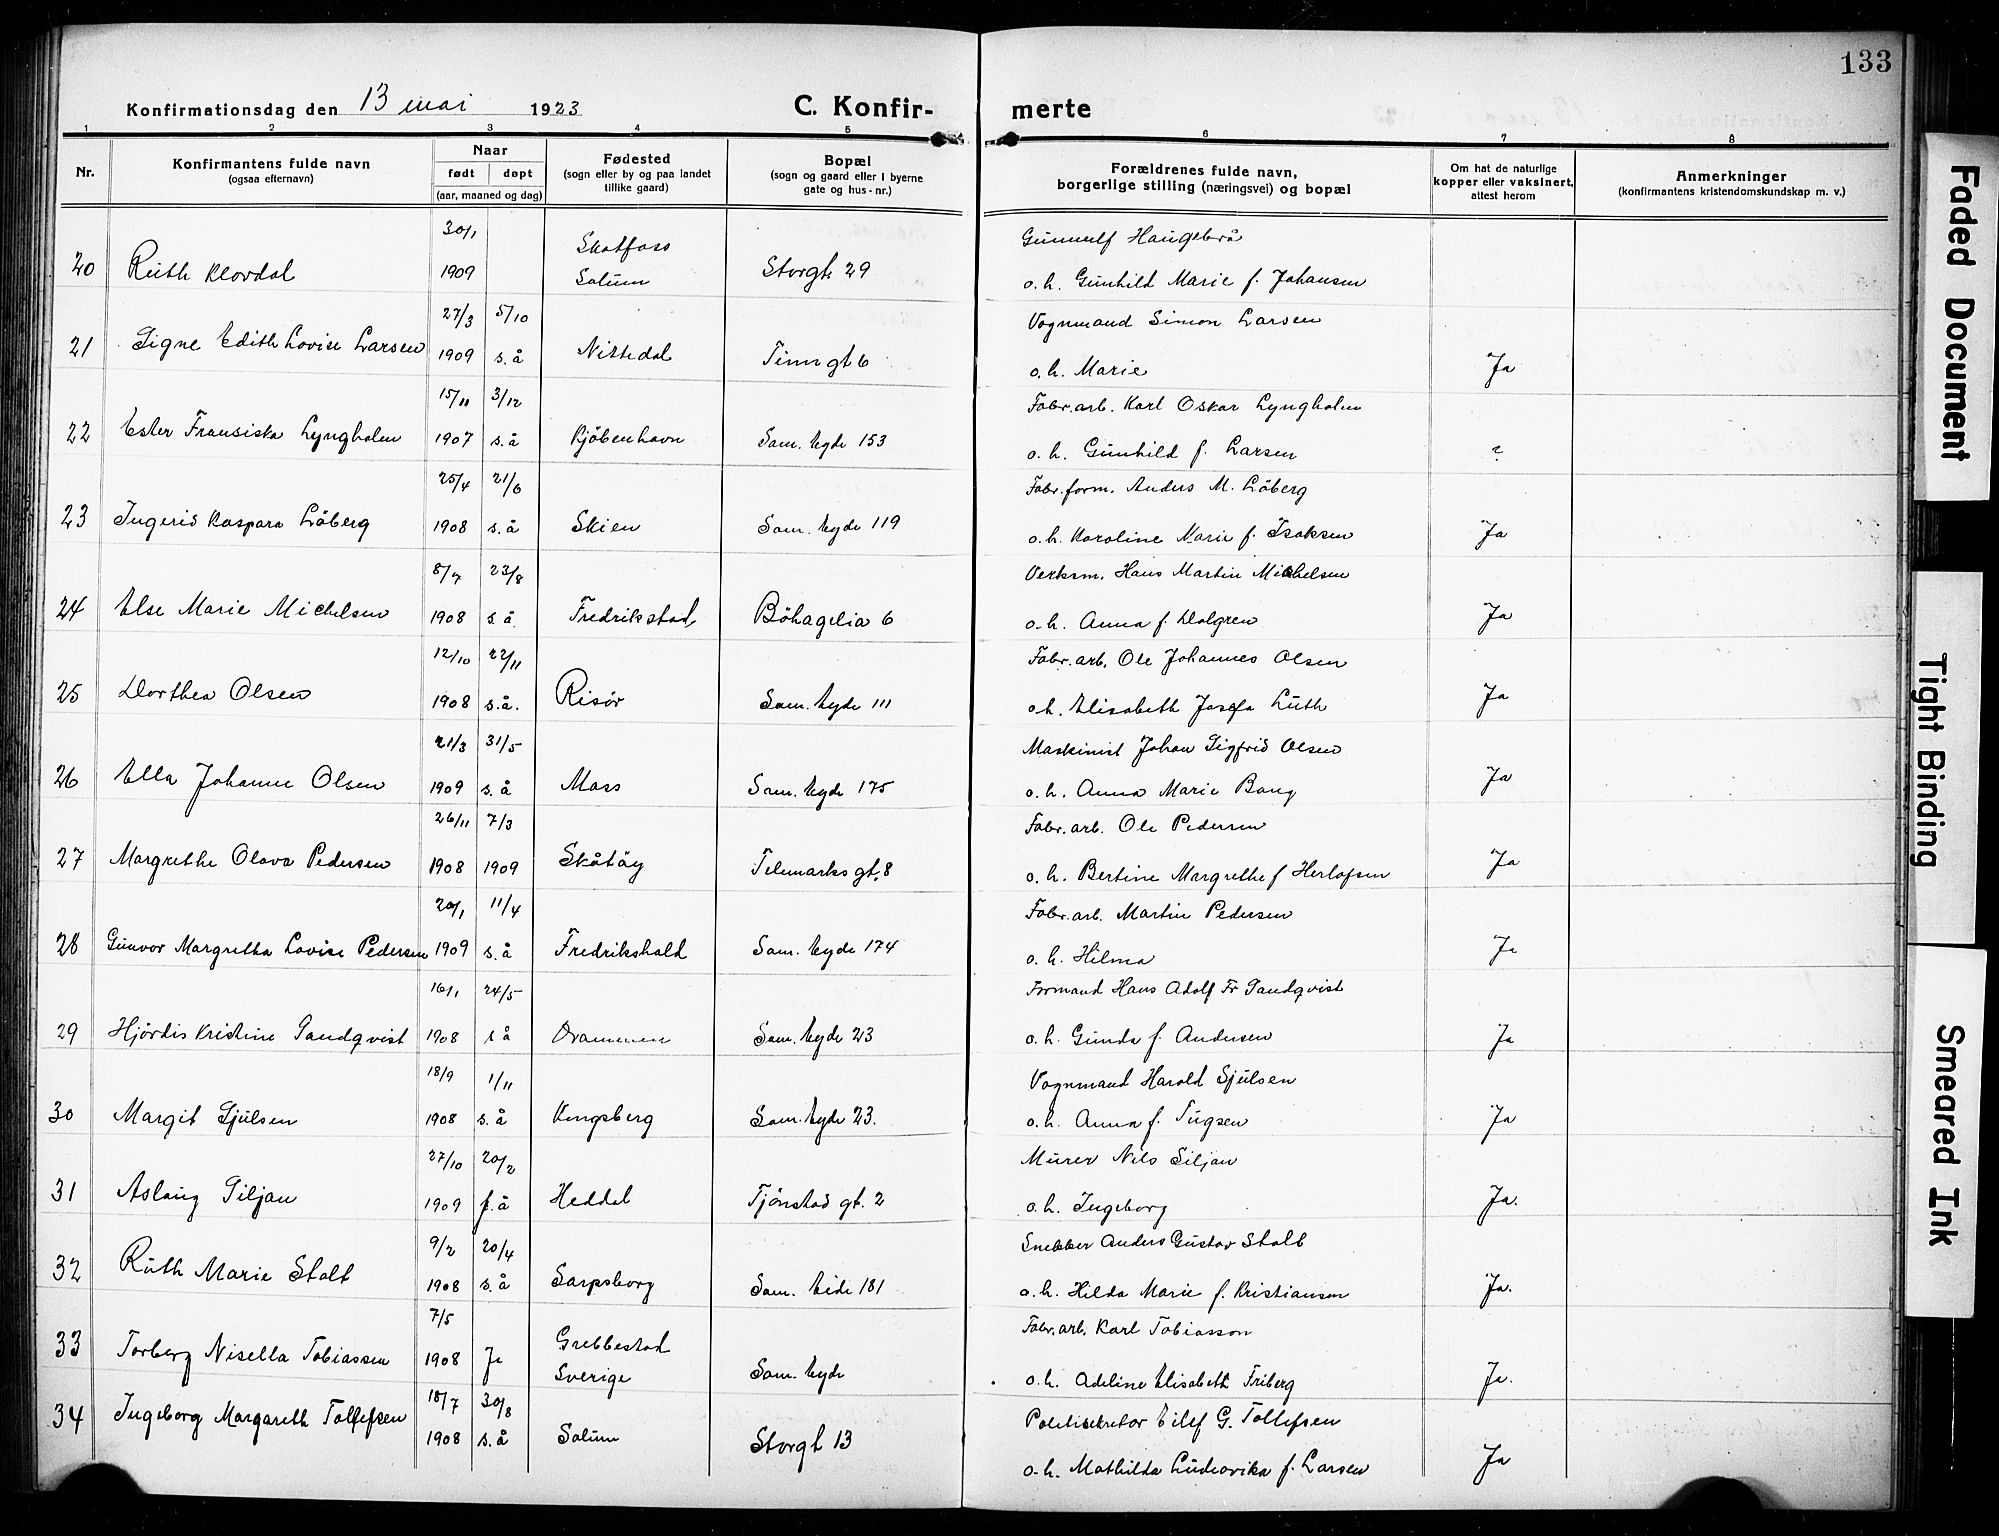 133
Konfirmationsdag den 13 mai 1923
C. Konfir- merte
1 2 3 4 5 6 7 8
Nr.
Konfirmantens fulde navn
(ogsaa efternavn)
Naar
født døpt
(aar, maaned og dag)
Fødested
(sogn eller by og paa landet
tillike gaard)
Bopæl
(sogn og gaard eller i byerne
gate og hus-nr.)
Forældrenes fulde navn,
borgerlige stilling (næringsvei) og bopæl
Om hat de naturlige
kopper eller vaksinert,
attest herom
Anmerkninger
(konfirmantens kristendomskundskap m. v.)
30/1 Skotfoss Gunnulf Haugebrå
20 Ruth Klovdal 1909 Solum Storgt 29 o. h. Gunhild Marie f. Johansen
27/3 5/10 Vognmand Simon Larsen
21 Signe Edith Lovise Larsen 1909 s.å Nittedal Tinngt 6 o.h. Marie Ja
15/11 3/12 Fabr.arb. Karl Oskar Lyngholm
22 Ester Fransiska Lyngholm 1907 s.å Kjöbenhavn Sam. Eyde 153 o. h. Gunhild f. Larsen ?
25/4 21/6 Fabr.form. Anders M. Löberg
23 Ingeris Kaspara Löberg 1908 s.å Skien Sam. Eyde 119 o.h. Karoline Marie f. Isaksen Ja
8/7 23/8 Verksm. Hans Martin Michelsen
24 Else Marie Michelsen 1908 s.å. Fredrikstad Böhagelia 6 o.h. Anna f. Dalgren Ja
12/10 22/11 Fabr.arb. Ole Johannes Olsen
25 Dorthea Olsen 1908 s.å. Risør Sam. Eyde 111 o.h. Elisabeth Josefa Luth Ja
21/3 31/5 Maskinist Johan Sigfrid Olsen
26 Ella Johanne Olsen 1909 s.å Moss Sam. Eyde 175 o.h. Anna Marie Bang Ja
26/11 7/3 Fabr.arb. Ole Pedersen
27 Margrethe Olava Pedersen 1908 1909 Skåtöy Telemarks gt. 8 o. h. Bertine Margrethe f Herlofsen Ja
20/1 11/4 Fabr.arb. Martin Pedersen
28 Gunvor Margretha Lovise Pedersen 1909 s.å Fredrikshald Sam. Eyde 174 o. h. Hilma Ja
16/1 24/5 Formand Hans Adolf Fr Sandqvist
29 Hjördis Kristine Sandqvist 1908 s å Drammen Sam. Eyde 23 o.h. Gunda f. Andersen Ja
18/9 1/11 Vognmand Harald Sjulsen
30 Margit Sjulsen 1908 s.å Kongsberg Sam. Eyde 23. o.h. Anna f. Ja
27/10 20/2 Murer Nils Siljan
31 Aslaug Siljan 1909 f.å Heddal Tjönstad gt. 2 o.h. Ingeborg Ja.
9/2 20/4 Snekker Anders Gustav Stolt
32 Ruth Marie Stolt 1908 s.å Sarpsborg Sam. Eide 181 o. h. Hilda Marie f. Kristiansen Ja.
7/5 Grebbestad Fabr.arb. Karl Tobiasson
33 Torberg Nisella Tobiassen 1908 Ja Sverige Sam. Eyde o.h. Adeline Elisabeth Friberg Ja.
18/7 30/8 Politisekretær Eilef G. Tollefsen
34 Ingeborg Margareth Tollefsen 1908 s.å Solum Storgt 13 o.h. Mathilda Ludovika f. Larsen Ja
Faded Document
Tight Binding
Smeared Ink